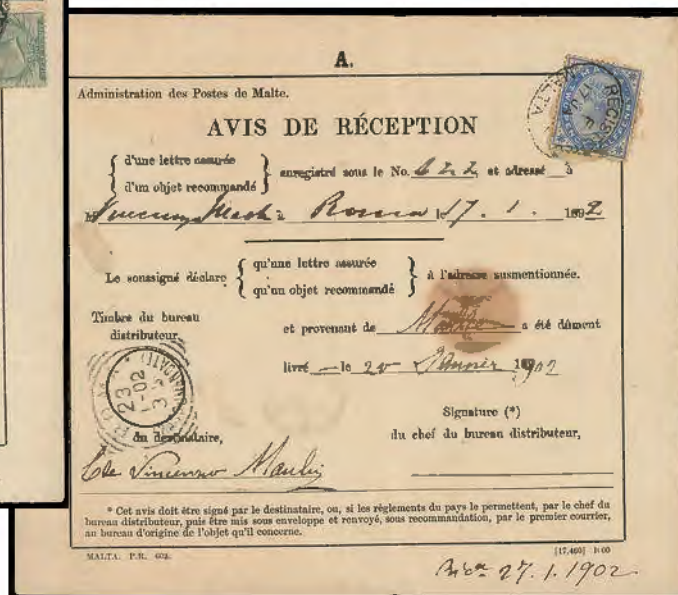 A.
Administration des Postes de Malte.
AVIS DE RÉCEPTION
d'une lettre assurée
d'un objet recommandé
enregistré sous le No. 622 et adressé à
Rome le 17. 1. 1892
Le soussigné déclare
qu'une lettre assurée
qu'un objet recommandé
à l'adresse susmentionnée.
Timbre du bureau
distributeur,
et provenant de Malte a été dûment
livré le 20 1902
ROMA
23
1-02
Signature (*)
du destinataire,
du chef du bureau distributeur,
Cte Vincenzo
* Cet avis doit être signé par le destinataire, ou, si les règlements du pays le permettent, par le chef du
bureau distributeur, puis être mis sous enveloppe et renvoyé, sous recommandation, par le premier courrier,
au bureau d'origine de l'objet qu'il concerne.
MALTA. P.R. 602.
[17,460] 1•00
27.1.1902.
MALTA